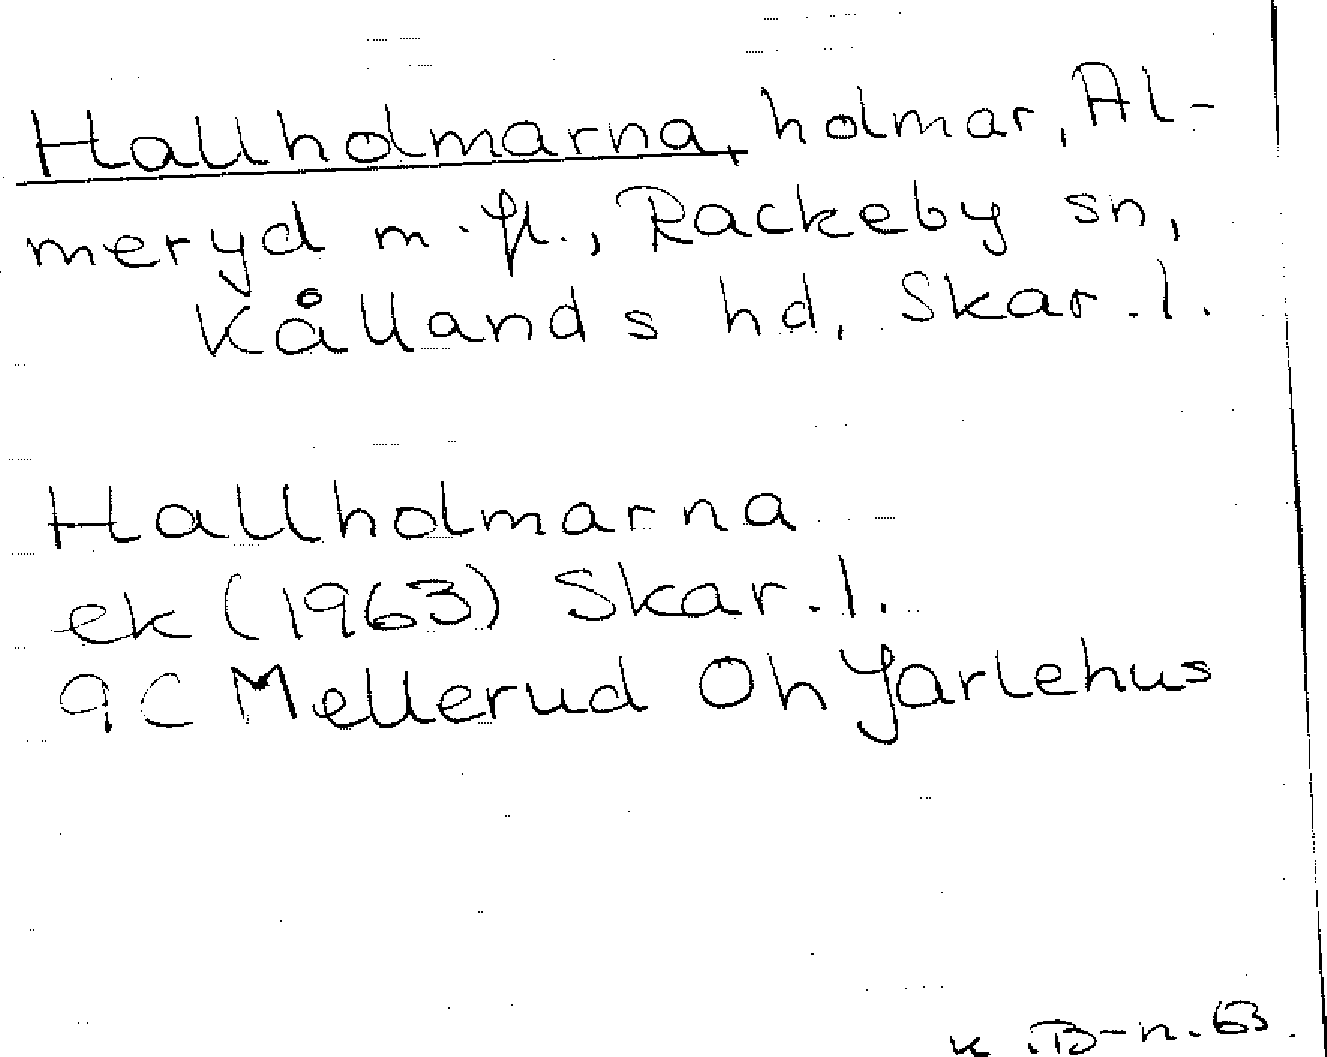 Hallholmarna, holmar, Al-
meryd m.fl., Rackeby sn,
Kållands hd, Skar.l.
Hallholmarna
ek (1963) Skar.l.
9C Mellerud Oh Jarlehus
K.B-n.63.